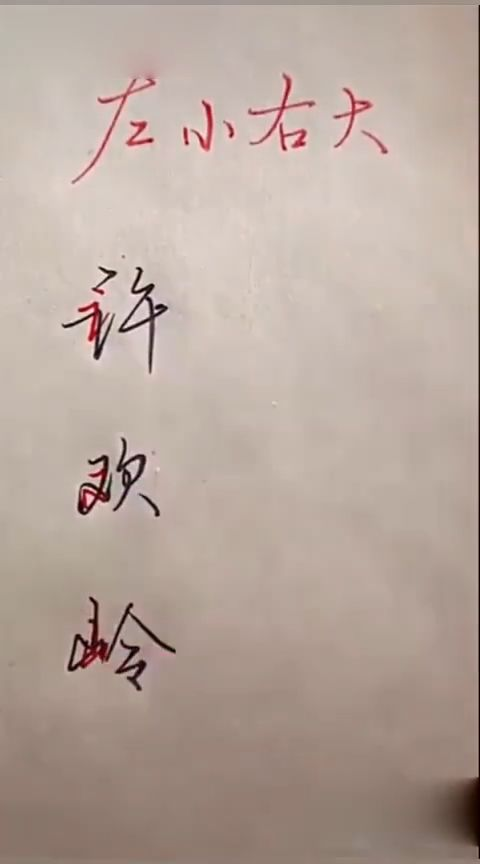 左小右大
許
欢
岭